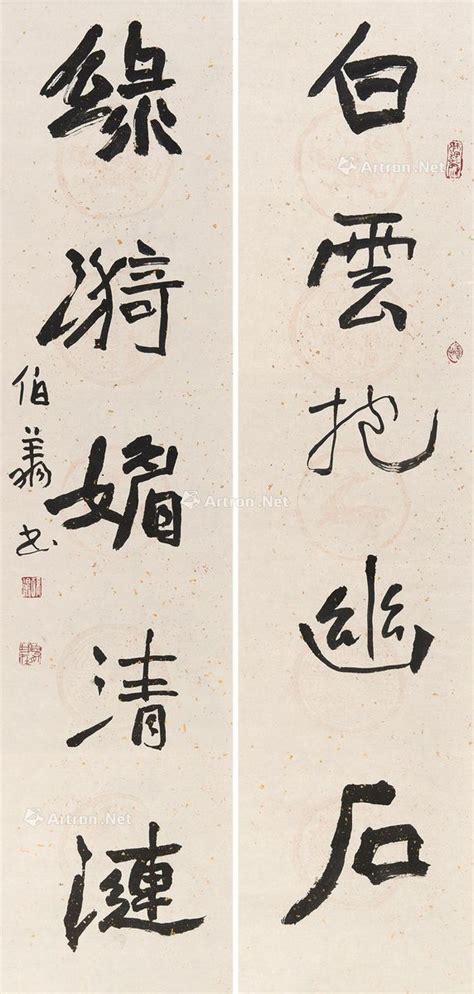 白雲抱幽石
綠漪媚清漣
伯翔书
Artron.Net
Artron.Net
Artron.Net